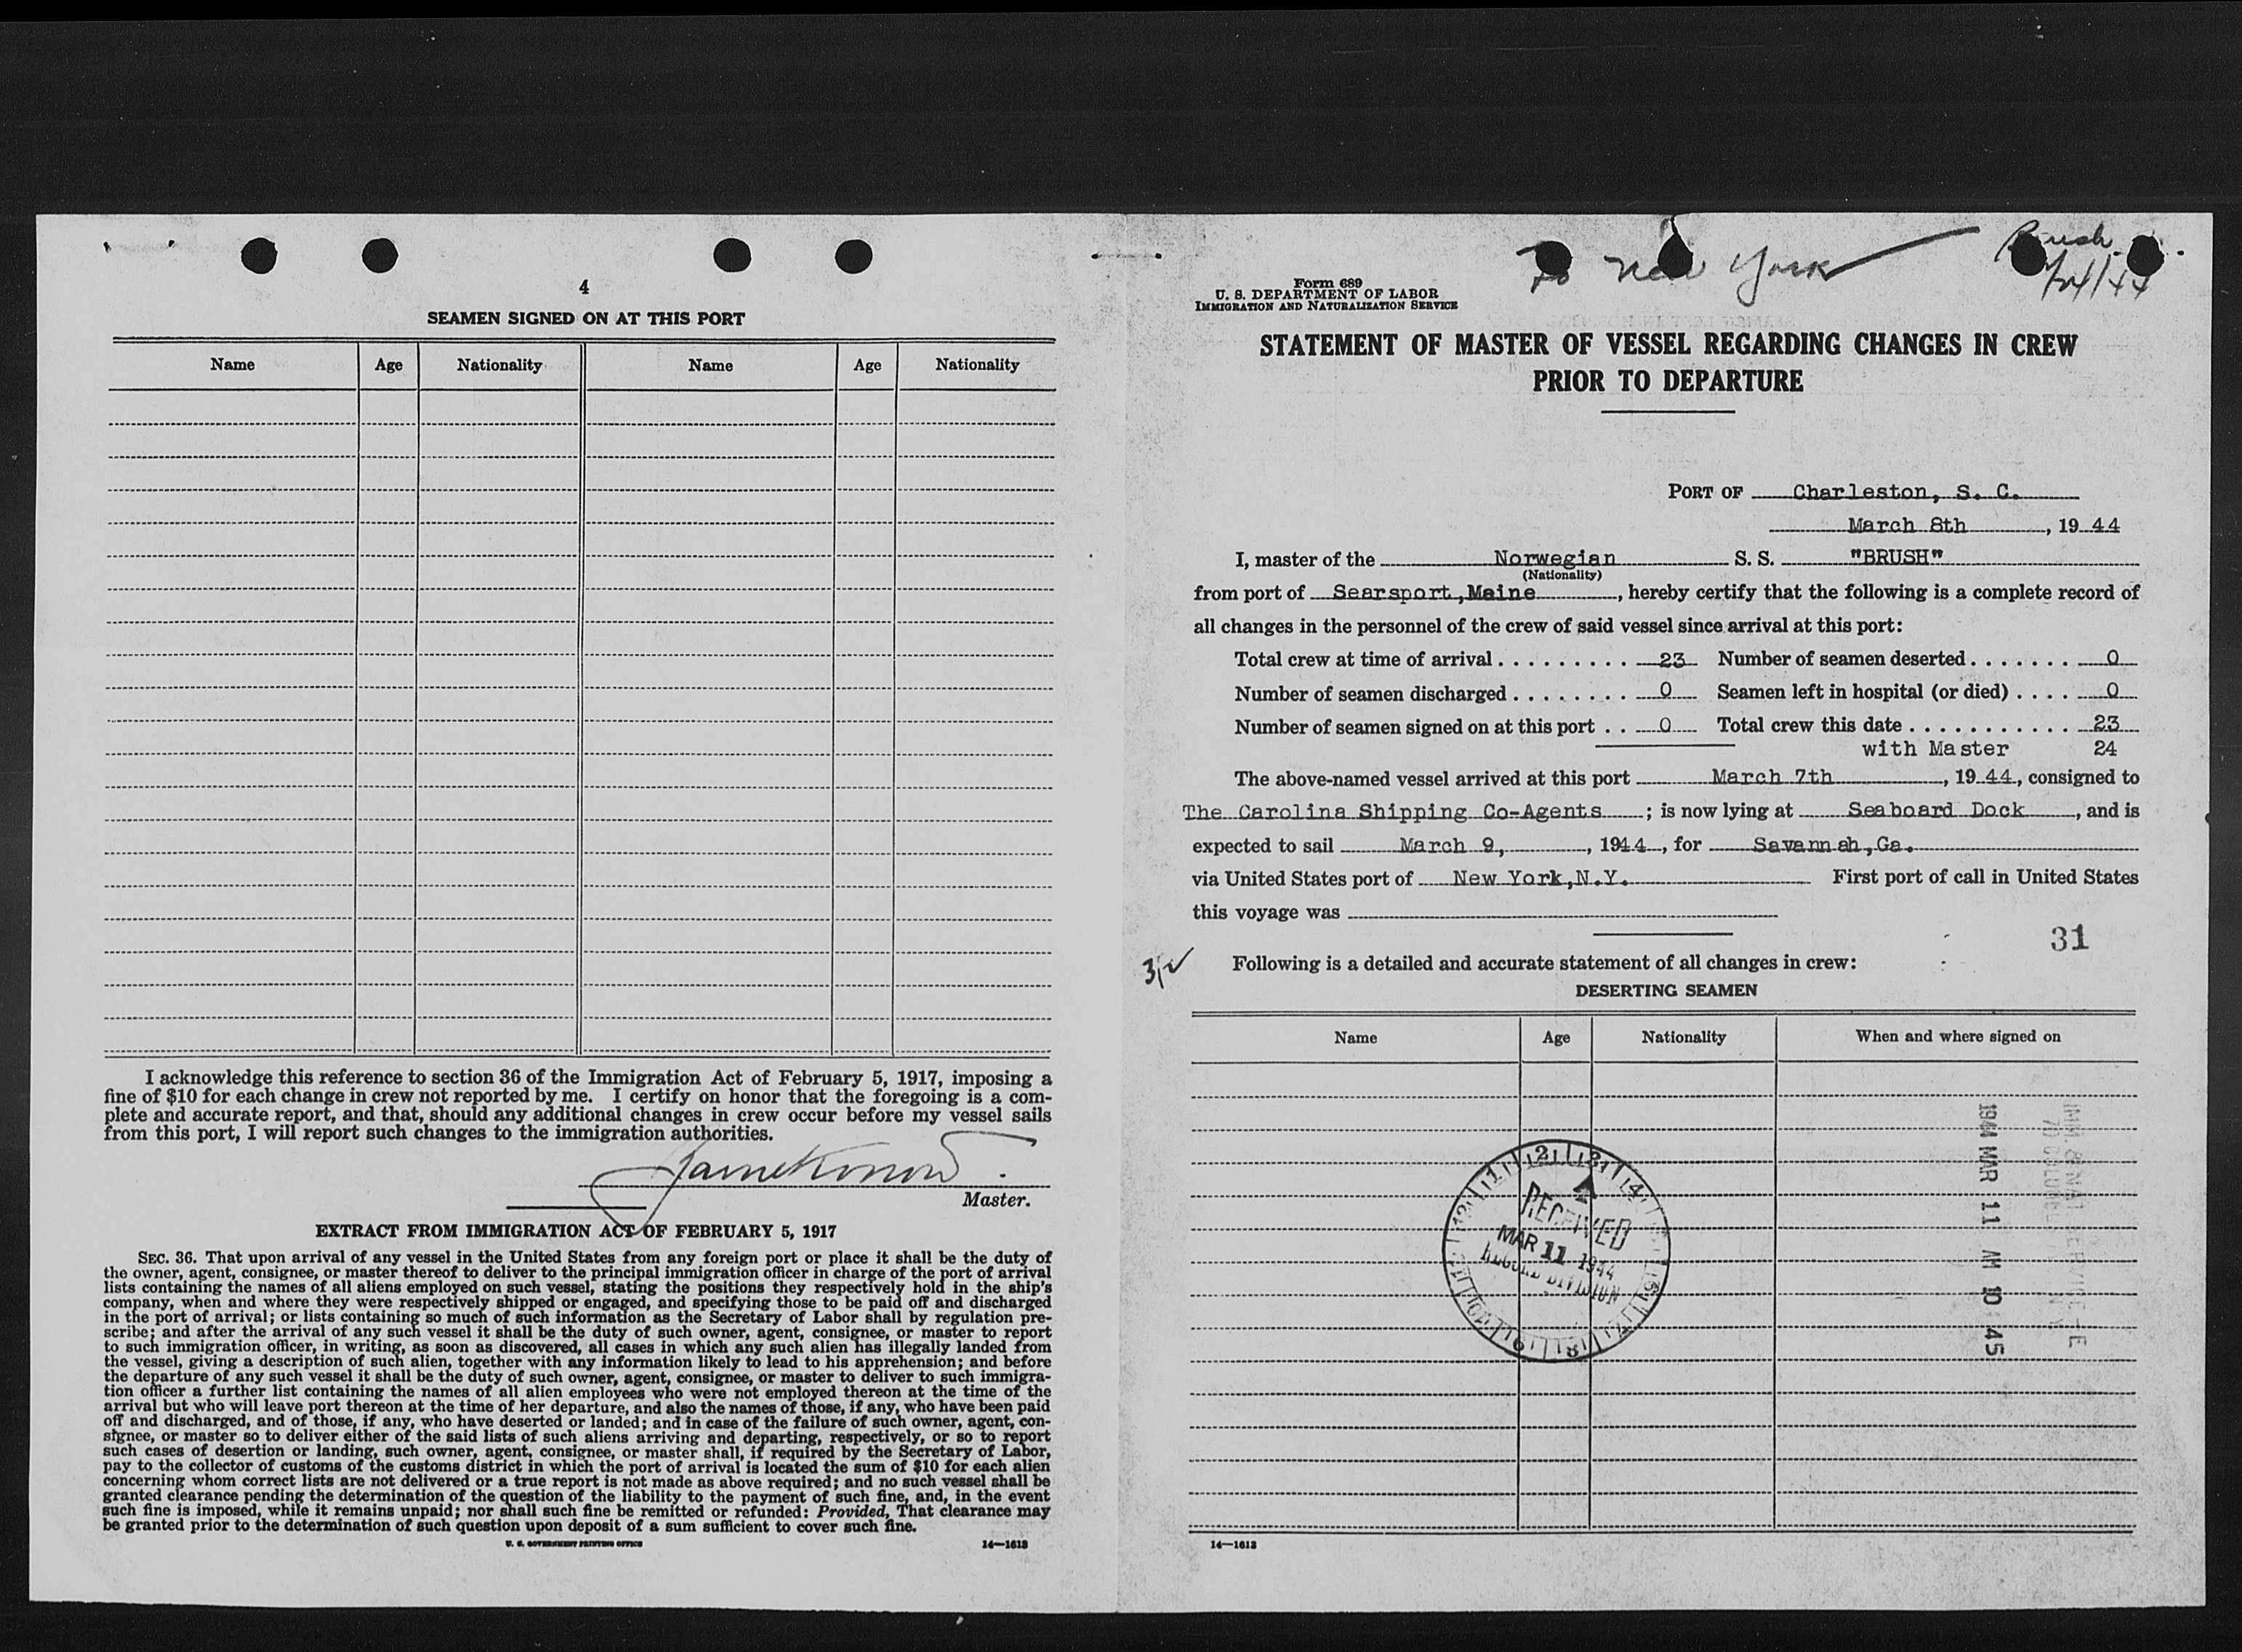 4
SEAMEN SIGNED ON AT THIS PORT
Name Age Nationality Name Age Nationality
I acknowledge this reference to section 36 of the Immigration Act of February 5, 1917, imposing a
fine of $10 for each change in crew not reported by me. I certify on honor that the foregoing is a com-
plete and accurate report, and that, should any additional changes in crew occur before my vessel sails
from this port, I will report such changes to the immigration authorities.
Master.
EXTRACT FROM IMMIGRATION ACT OF FEBRUARY 5, 1917
SEC. 36. That upon arrival of any vessel in the United States from any foreign port or place it shall be the duty of
the owner, agent, consignee, or master thereof to deliver to the principal immigration officer in charge of the port of arrival
lists containing the names of all aliens employed on such vessel, stating the positions they respectively hold in the ship's
company, when and where they were respectively shipped or engaged, and specifying those to be paid off and discharged
in the port of arrival; or lists containing so much of such information as the Secretary of Labor shall by regulation pre-
scribe; and after the arrival of any such vessel it shall be the duty of such owner, agent, consignee, or master to report
to such immigration officer, in writing, as soon as discovered, all cases in which any such alien has illegally landed from
the vessel, giving a description of such alien, together with any information likely to lead to his apprehension; and before
the departure of any such vessel it shall be the duty of such owner, agent, consignee, or master to deliver to such immigra-
tion officer a further list containing the names of all alien employees who were not employed thereon at the time of the
arrival but who will leave port thereon at the time of her departure, and also the names of those, if any, who have been paid
off and discharged, and of those, if any, who have deserted or landed; and in case of the failure of such owner, agent, con-
signee, or master so to deliver either of the said lists of such aliens arriving and departing, respectively, or so to report
such cases of desertion or landing, such owner, agent, consignee, or master shall, if required by the Secretary of Labor,
pay to the collector of customs of the customs district in which the port of arrival is located the sum of $10 for each alien
concerning whom correct lists are not delivered or a true report is not made as above required; and no such vessel shall be
granted clearance pending the determination of the question of the liability to the payment of such fine, and, in the event
such fine is imposed, while it remains unpaid; nor shall such fine be remitted or refunded: Provided, That clearance may
be granted prior to the determination of such question upon deposit of a sum sufficient to cover such fine.
U. S. GOVERNMENT PRINTING OFFICE 14—1613
To New York
Brush
Form 689
U. S. DEPARTMENT OF LABOR
IMMIGRATION AND NATURALIZATION SERVICE
STATEMENT OF MASTER OF VESSEL REGARDING CHANGES IN CREW
PRIOR TO DEPARTURE
PORT OF Charleston, S. C.
March 8th, 19 44
I, master of the Norwegian S. S. "BRUSH"
(Nationality)
from port of Searsport,Maine, hereby certify that the following is a complete record of
all changes in the personnel of the crew of said vessel since arrival at this port:
Total crew at time of arrival 23 Number of seamen deserted 0
Number of seamen discharged 0 Seamen left in hospital (or died) 0
Number of seamen signed on at this port 0 Total crew this date 23
with Master 24
The above-named vessel arrived at this port March 7th, 19 44, consigned to
The Carolina Shipping Co-Agents; is now lying at Seaboard Dock, and is
expected to sail March 9, , 1944, for Savannah,Ga.
via United States port of New York,N.Y. First port of call in United States
this voyage was
31
Following is a detailed and accurate statement of all changes in crew:
DESERTING SEAMEN
Name Age Nationality When and where signed on
RECEIVED
MAR 11 1944
RECORD DIVISION
1944 MAR 11 AM 10 45
14—1613